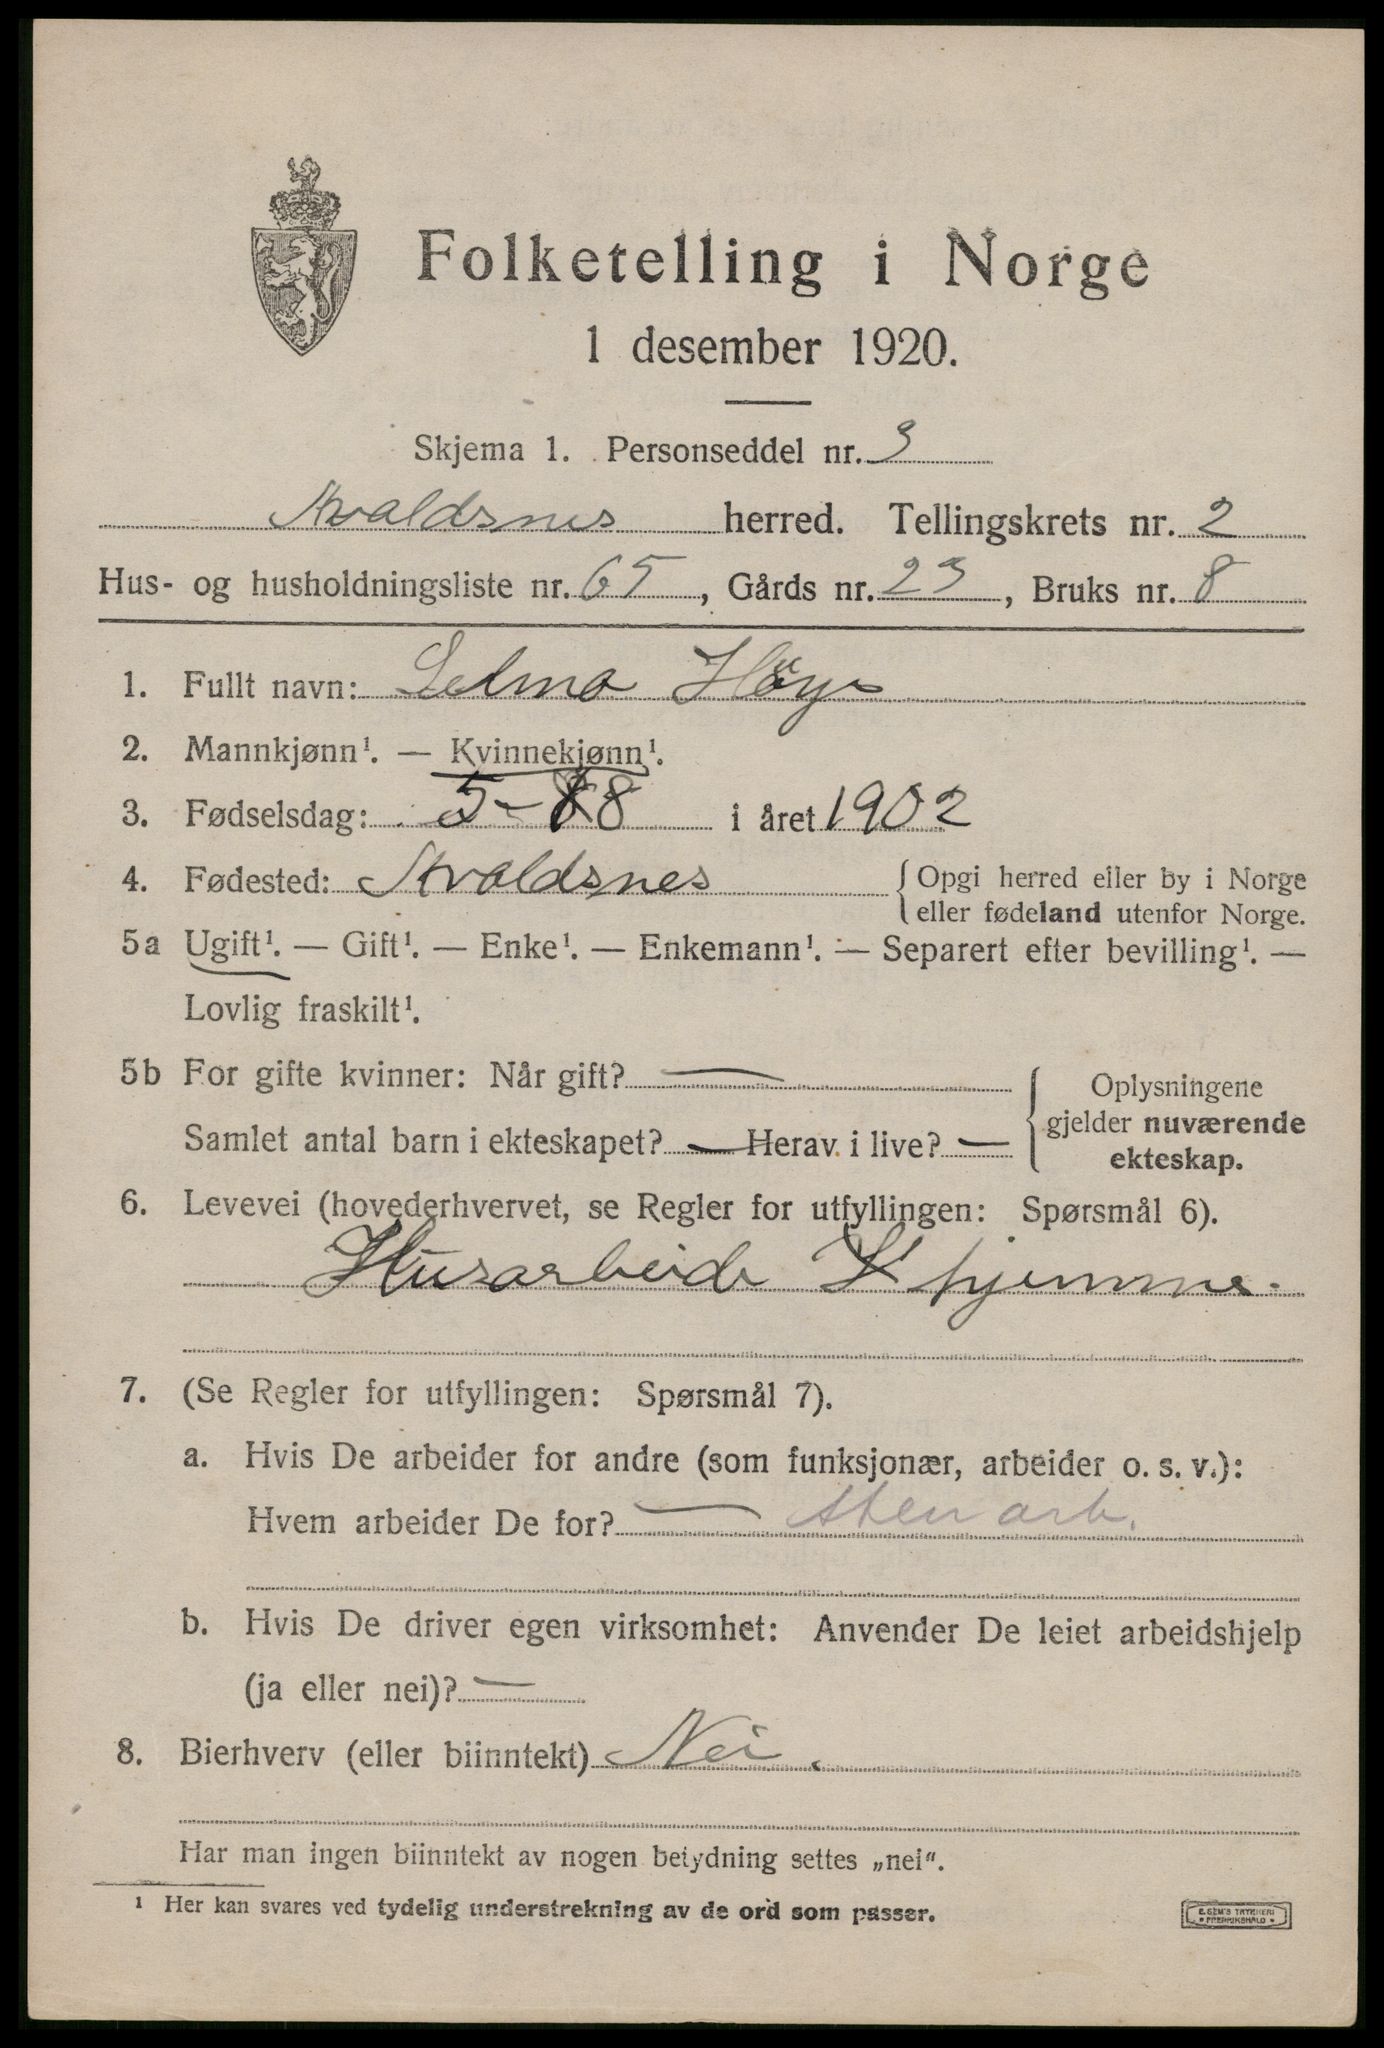 Folketelling i Norge
1 desember 1920.
Skjema 1. Personseddel nr. 3
Avaldsnes herred. Tellingskrets nr. 2
Hus- og husholdningsliste nr. 65, Gårds nr. 23, Bruks nr. 8
1. Fullt navn: Selma Höye
2. Mannkjønn¹. — Kvinnekjønn¹.
3. Fødselsdag: 5-8 i året 1902
4. Fødested: Avaldsnes { Opgi herred eller by i Norge
eller fødeland utenfor Norge.
5a Ugift¹. — Gift¹. — Enke¹. — Enkemann¹. — Separert efter bevilling¹. —
Lovlig fraskilt¹.
5b For gifte kvinner: Når gift? — { Oplysningene
gjelder nuværende
ekteskap.
Samlet antal barn i ekteskapet? — Herav i live? —
6. Levevei (hovederhvervet, se Regler for utfyllingen: Spørsmål 6).
Husarbeide hjemme.
7. (Se Regler for utfyllingen: Spørsmål 7).
a. Hvis De arbeider for andre (som funksjonær, arbeider o. s. v.):
Hvem arbeider De for? — stenarb.
b. Hvis De driver egen virksomhet: Anvender De leiet arbeidshjelp
(ja eller nei)? —
8. Bierhverv (eller biinntekt) Nei.
Har man ingen biinntekt av nogen betydning settes „nei".
¹ Her kan svares ved tydelig understrekning av de ord som passer.
E. SEM'S TRYKKERI
FREDRIKSHALD